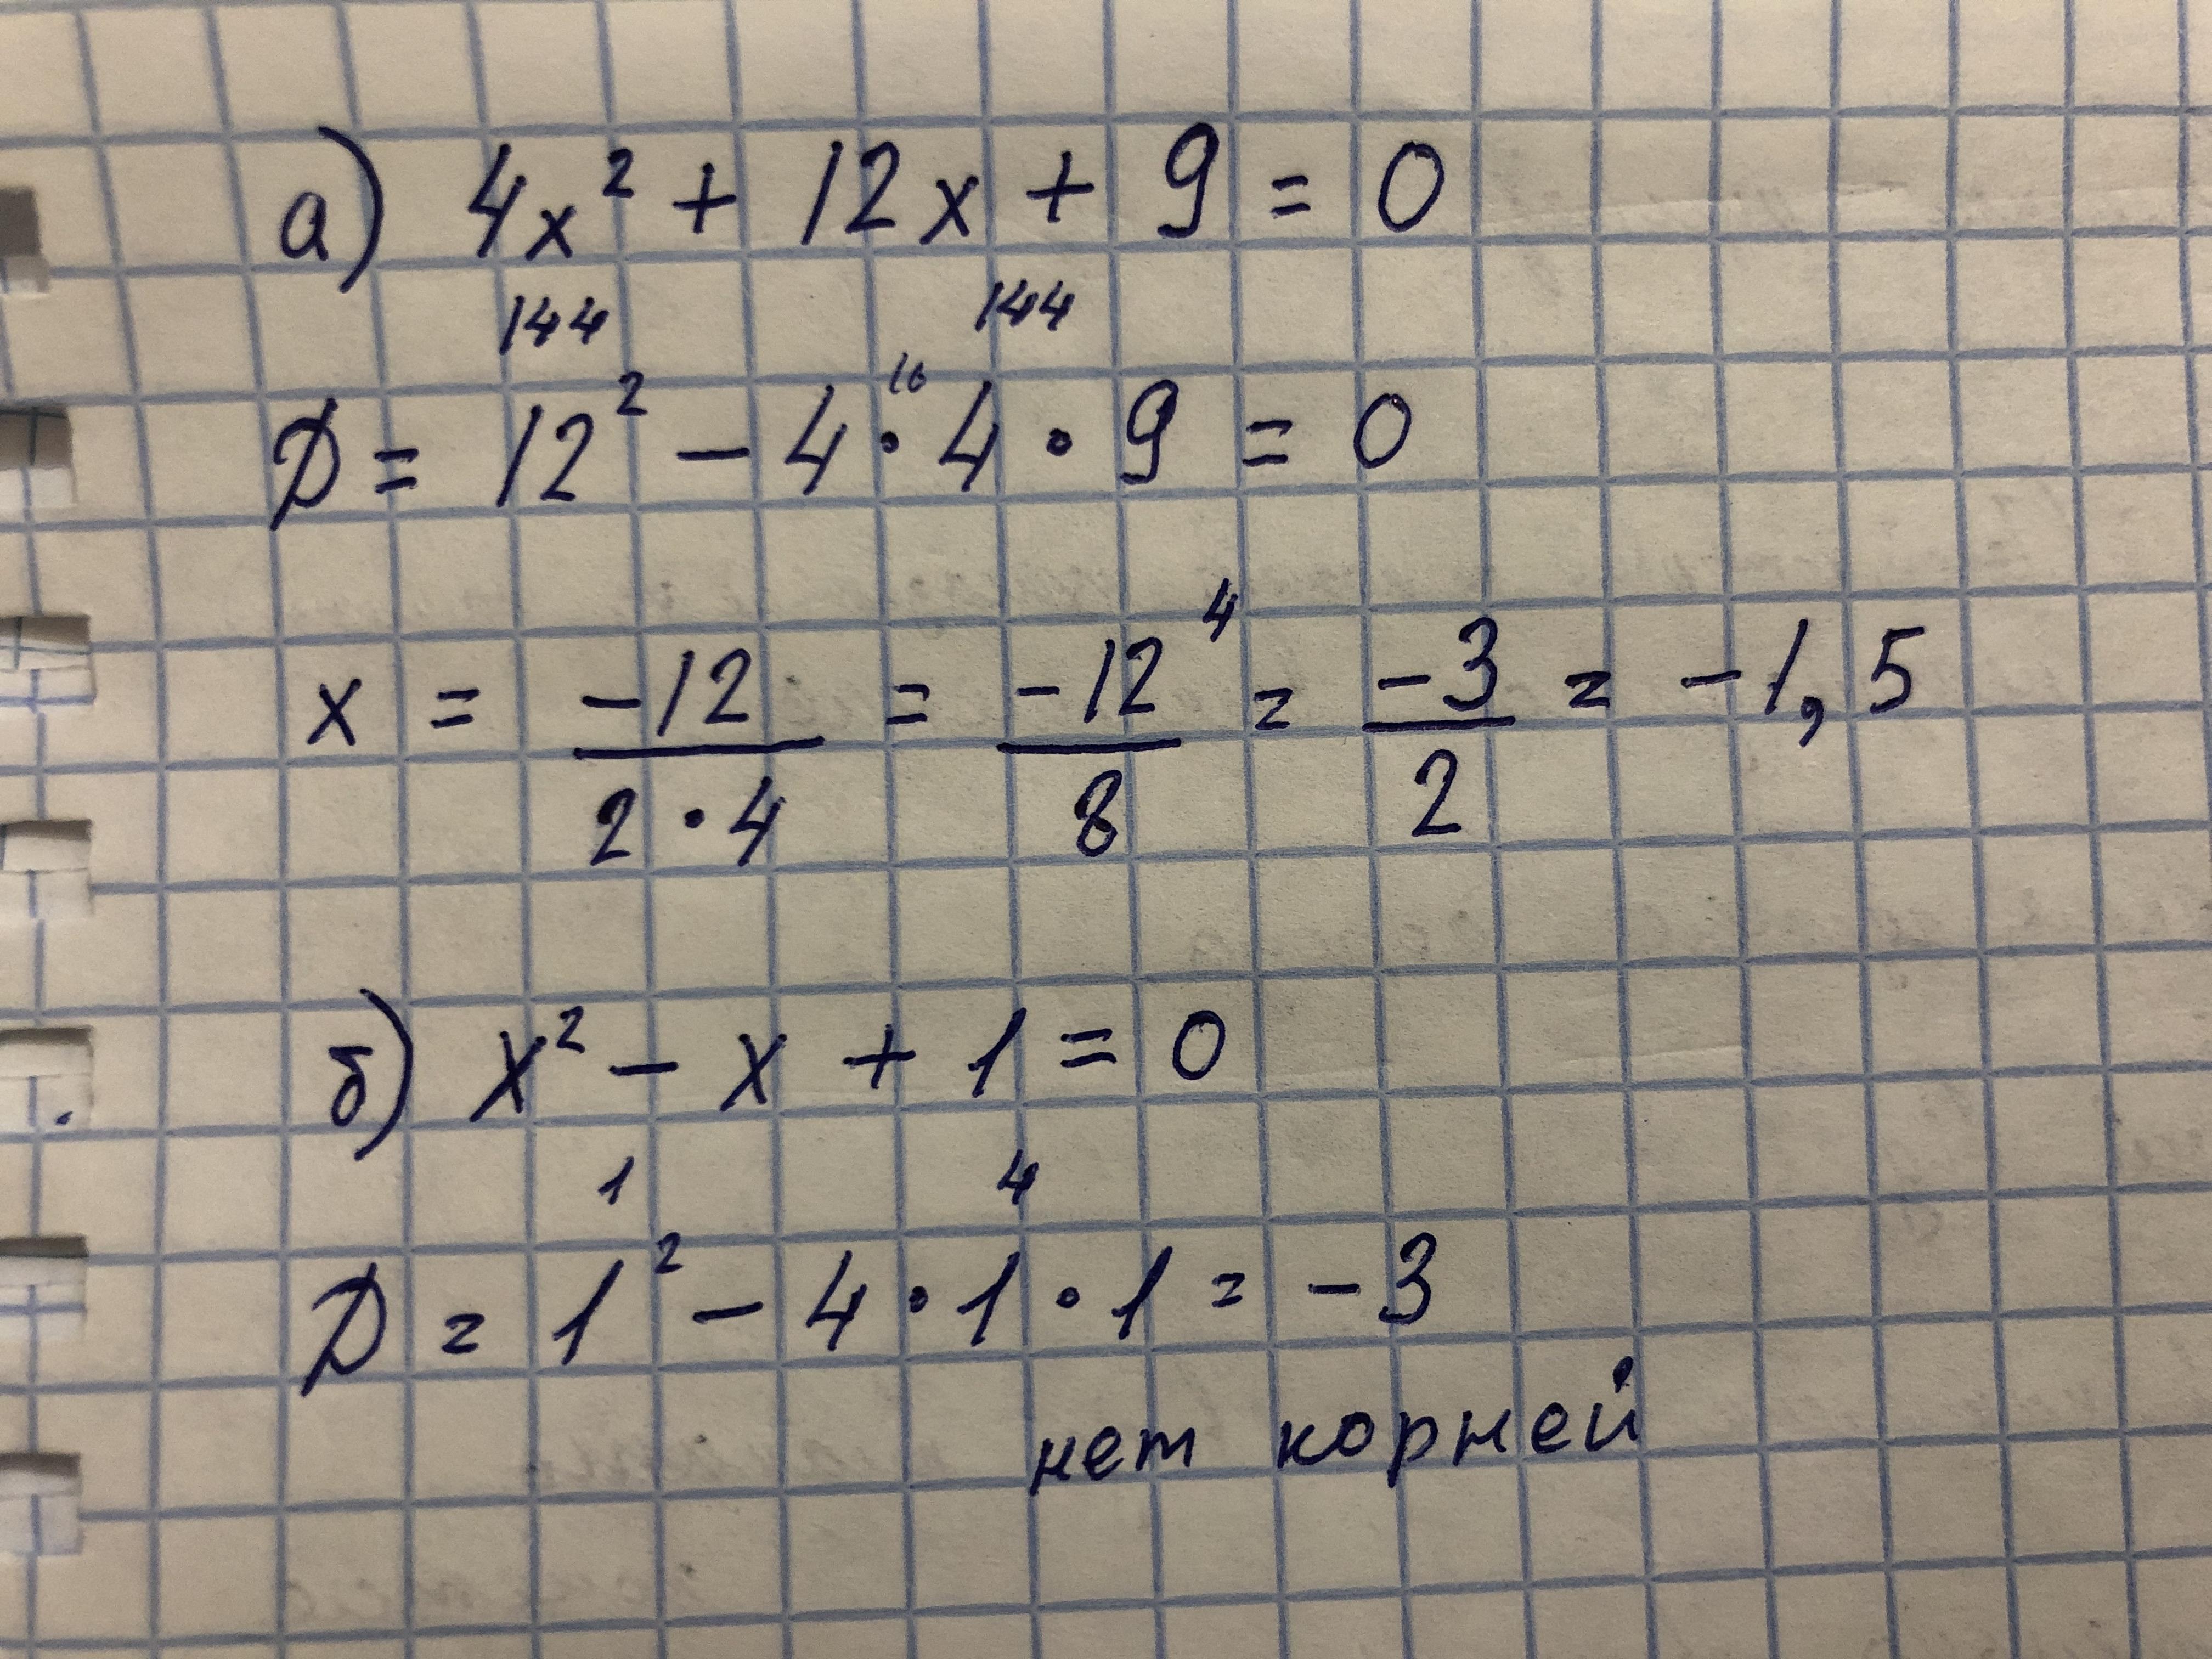 а) 4x² + 12x + 9 = 0
144 144
16
D = 12² - 4 · 4 · 9 = 0
4
x = -12/2·4 = -12/8 = -3/2 = -1,5
б) x² - x + 1 = 0
1 4
D = 1² - 4 · 1 · 1 = -3
нет корней